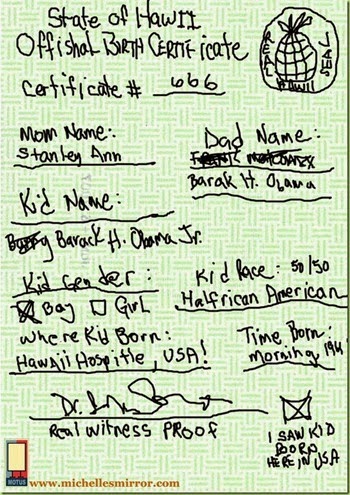 State of Hawii
Offishal BIRTH CERTIFicate
Certificate # 666
REAL SEAL HAWII
Mom Name:
Stanley Ann
Dad Name:
Barak H. Obama
Kid Name:
Barack H. Obama Jr.
Kid Gender:
Boy Girl
Kid Race: 50/50
Halfrican American
Where Kid Born:
Hawaii Hospitle, USA!
Time Born:
morning 1961
Dr.
Real witness PROOF
I SAW KID
BORN
HERE IN USA
MOTUS
www.michellesmirror.com